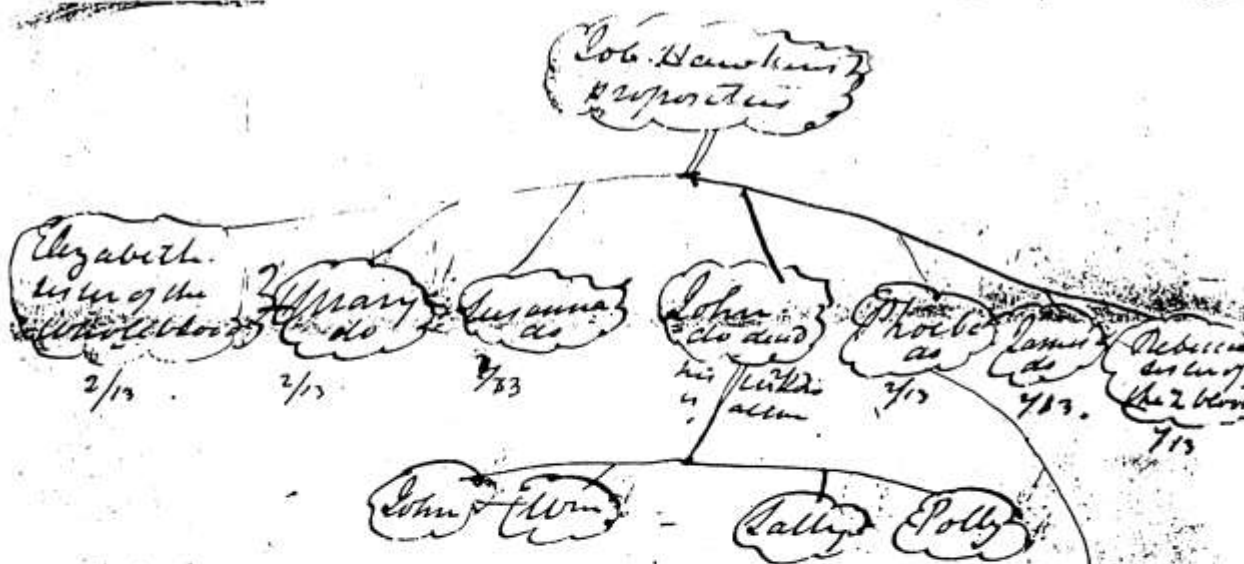 Job. Hawkins
propositus
Elizabeth.
sister of the
whole blood
2/13
Mary
do
2/13
Susanna
do
2/13
John
do dead
his
is
Phoebe
do
2/13
James
do
2/13.
Rebecca
sister of
the ½ blood
1/13
John
Wm
Sally
Polly